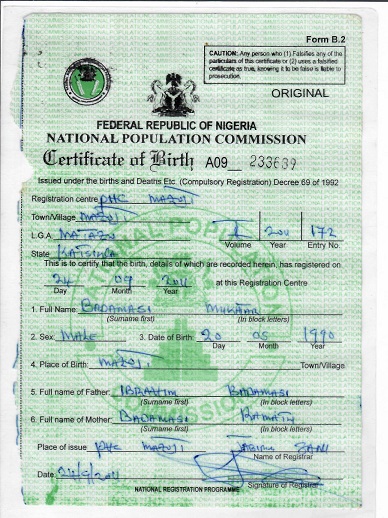 Form B.2
CAUTION: Any person who (1) Falsifies any of the
particulars of this certificate or (2) uses a falsified
certificate as true, knowing it to be false is liable to
prosecution.
ORIGINAL
FEDERAL REPUBLIC OF NIGERIA
NATIONAL POPULATION COMMISSION
Certificate of Birth A09 233639
Issued under the births and Deaths Etc. (Compulsory Registration) Decree 69 of 1992
Registration centre PHC MAZOJI
Town/Village MAZOJI
L.G.A. MATAZU 2011 172
Volume Year Entry No.
State KATSINA
This is to certify that the birth, details of which are recorded herein, has registered on
24 09 2011 at this Registration Centre
Day Month Year
1. Full Name: BADAMASI MUKTAR
(Surname first) (In block letters)
2. Sex: MALE 3. Date of Birth: 20 05 1990
Day Month Year
4. Place of Birth MAZOJI Town/Village
5. Full name of Father: IBRAHIM BADAMASI
(Surname first) (In block letters)
6. Full name of Mother: BADAMASI
(Surname first) (In block letters)
Place of issue PHC MAZOJI SANI
Name of Registrar
Date 24/9/2011
Signature of Registrar
NATIONAL REGISTRATION PROGRAMME